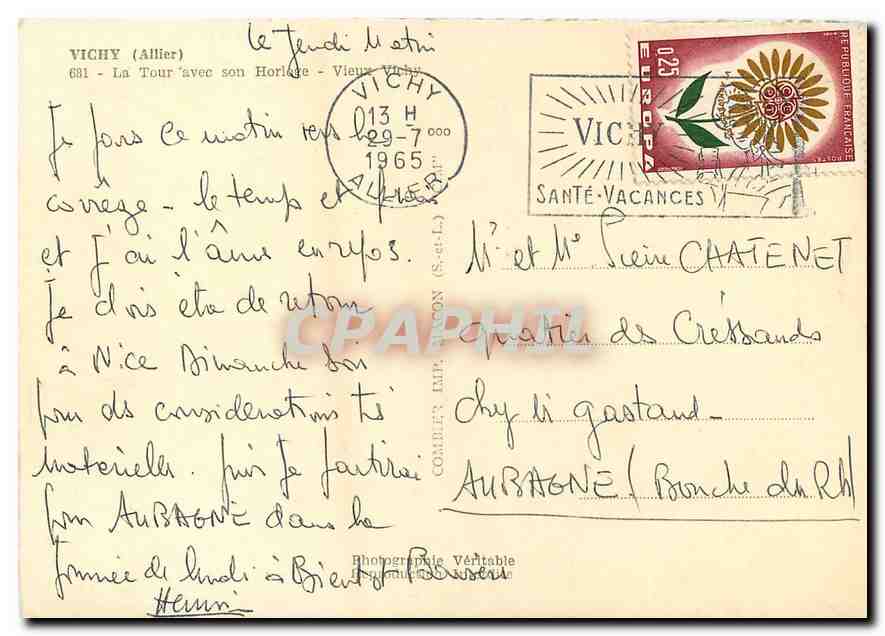 VICHY (Allier)
681 - La Tour avec son Horloge - Vieux Vichy
le Jeudi Matin
Je pars ce matin vers la
corrège - le temps est
et j'ai l'âme en repos.
Je dois être de retour
à Nice Dimanche soir
pour des considérations très
matérielles. puis je partirai
pour AUBAGNE dans la
journée de lundi à Bientôt
Henri
COMBIER IMP. MACON (S.-et-L.)
Photographie Véritable
Reproduction Interdite
VICHY
13 H
29-7
1965
ALLIER
VICHY
SANTÉ-VACANCES
REPUBLIQUE FRANÇAISE
POSTES
0,25
EUROPA
Mr et Me Pierre CHATENET
quartier des Cressauds
chez
AUBAGNE (Bouche du Rh)
CPAPHIL